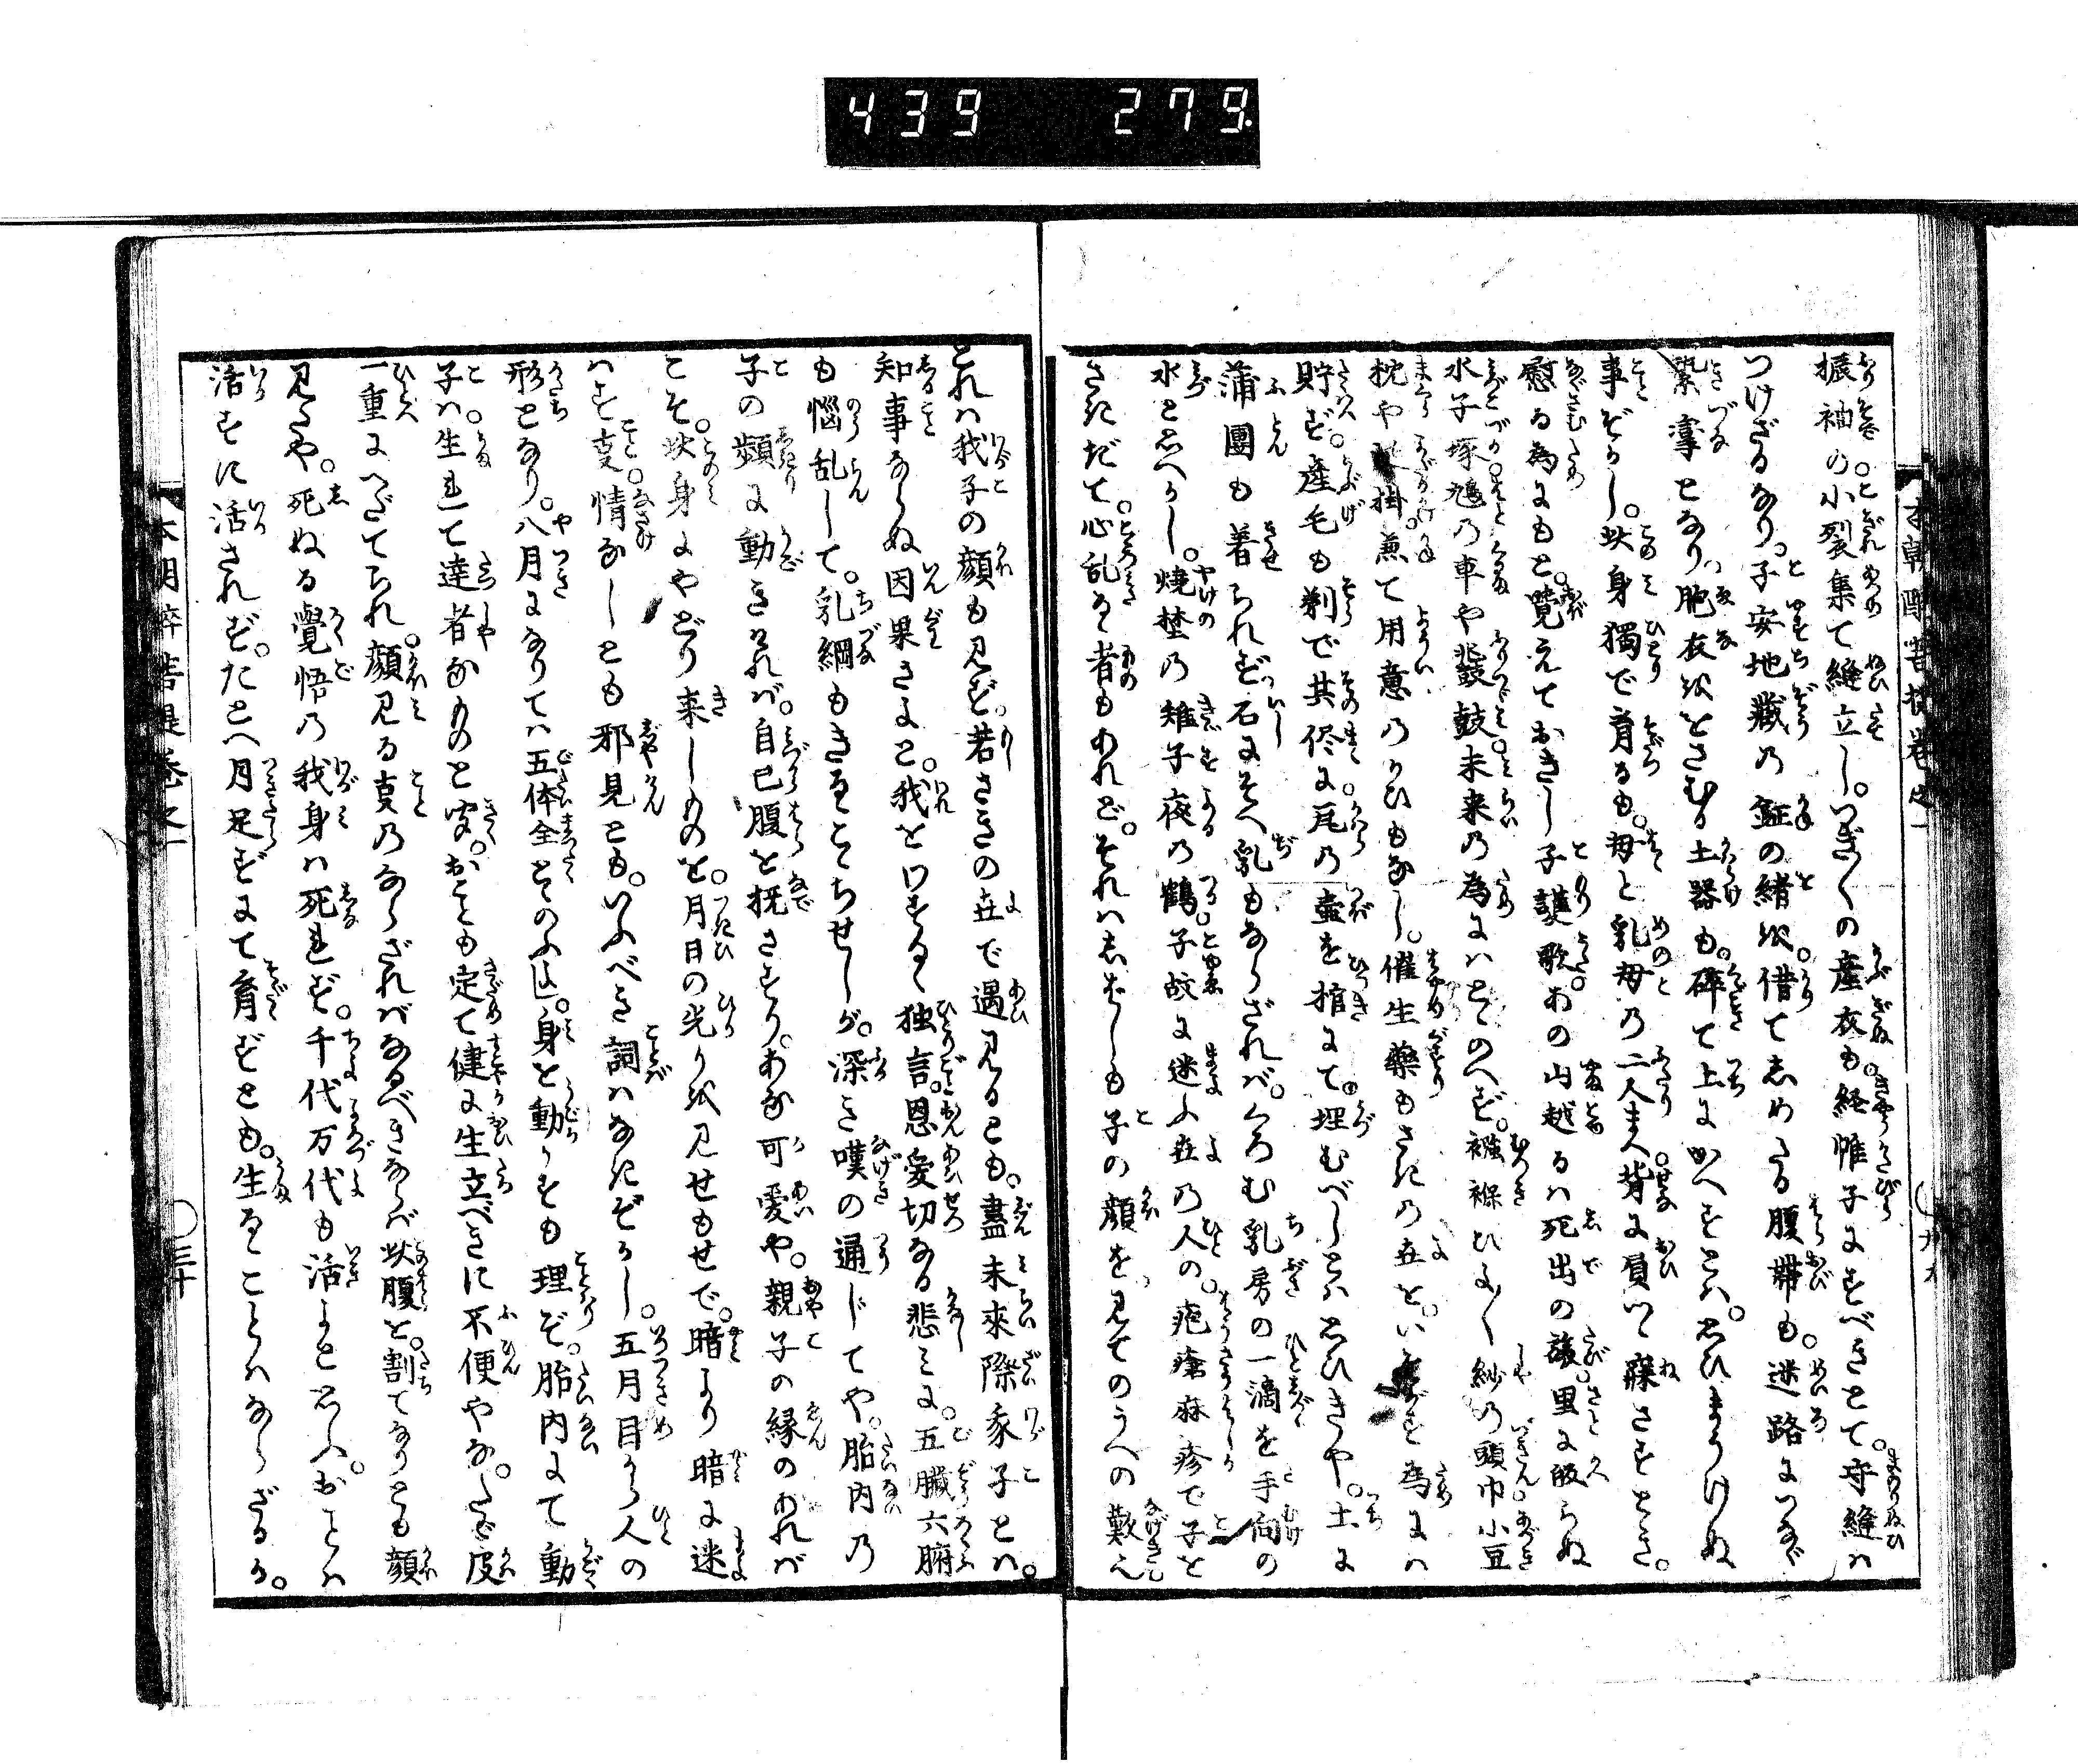 439 279.
振袖の小裂集て縫立し。つぎ〳〵の産衣も。経帷子にすべきとて。守縫は
つけざるなり。子安地蔵の鉦の緒を。借てしめたる腹帯も。迷路につなぐ
繋蔓となり。胞衣ををさむる土器も。碎て上にかへすとは。思ひまうけぬ
事ぞかし。此身独で育るも。母と乳母の二人まへ。背に負いて寐さすとき。
慰る為にもと。覚えておきし子護歌。あの山越るは死出の旅。里に皈らぬ
水子塚。鳩の車や鼗鼓。未来の為にはとゝのへず。襁褓ひよ〳〵紗の頭巾。小豆
枕や掛。兼て用意のかひもなし。催生薬もさきの世と。いはず為には
貯ず。産毛も剃で其侭に。瓦の壷を棺にて。埋むべしとは思ひきや。土に
蒲団も着られず。石にそへ乳もならざれば。くろむ乳房の一滴を手向の
水と思へかし。焼埜の雉子夜の鶴。子故に迷ふ世の人の。疱瘡麻疹で子を
さきだて。心乱るゝ者もあれど。それはしばしも子の顔を。見てのうへの歎え
とれは我子の顔も見ず。若さきの世で遇見るとも。盡未來際我子とは。
知事ならぬ因果さよと。我とわするゝ独言。恩愛切なる悲みに。五臓六腑
も惱乱して。乳綱もきるゝこゝちせしが。深き嘆の通じてや。胎内の
子の頻に動きければ。自己腹を撫さすり。あな可愛や。親子の縁のあれば
こそ。此身にやどり来しものを。月日の光りを見せもせで。暗より暗に迷
はす㕝。情なしとも邪見とも。いふべき詞はなきぞかし。五月目から人の
形となり。八月になりては五体全とゝのふ由。身を動かすも理ぞ。胎内にて動
子は。生れて達者なものと聞。おことも定て健に生立べきに不便やな。たゞ皮
一重にへだてられ。顔見る㕝のならざればなるべきならば此腹を。割てなりとも顔
見たや。死ぬる覺悟の我身は死れず。千代万代も活よと思ふ。おことは
活すに活されず。たとへ月足ずにて育ずとも。生るゝことはならざるか。
本朝酔菩提巻之一
三十